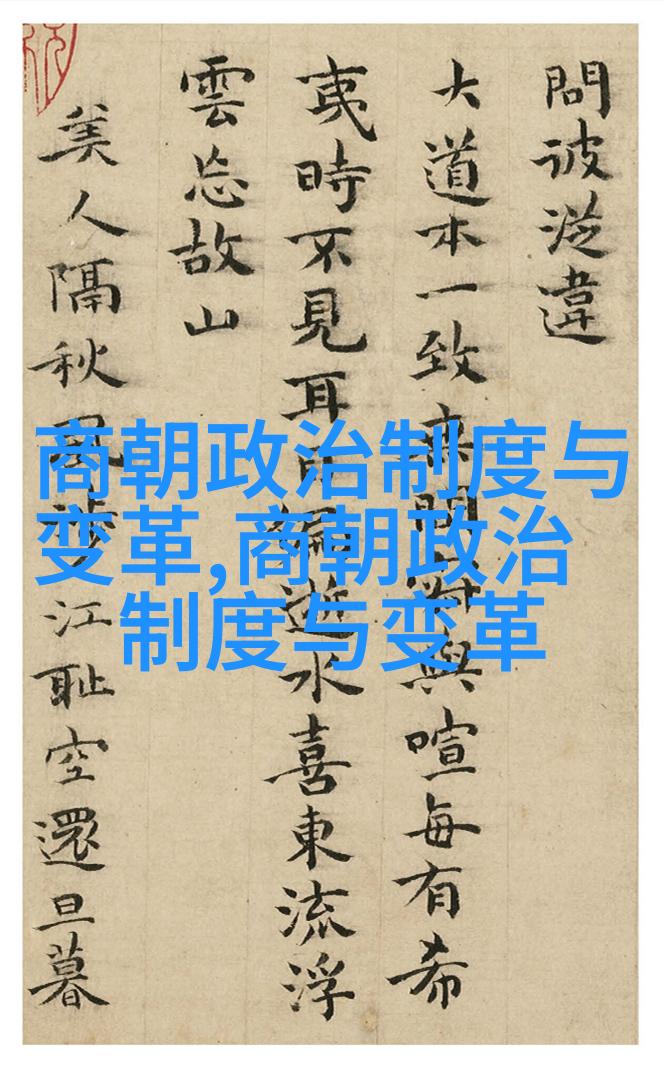 問彼從違
大道本一致無間與喧每有希
夷時不見耳逝水喜東流浮
雲忘故山
美人隔秋風涉江耻空還旦暮
商朝政治制度与
变革,商朝政治
制度与变革